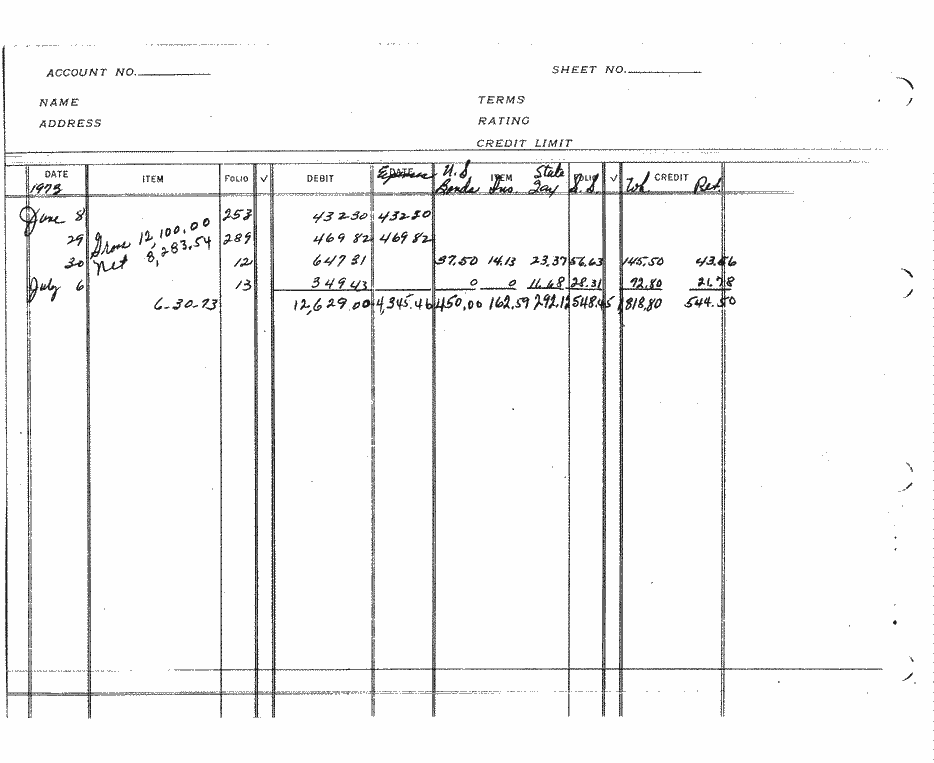 ACCOUNT NO. SHEET NO.
NAME TERMS
ADDRESS RATING
CREDIT LIMIT
DATE ITEM FOLIO √ DEBIT DATE Expense U.S. Bonds ITEM Ins. State Tax FOLIO S.S √ CREDIT Wh Ret.
1973
June 8 253 432 50 432 50
29 Gross 12,100.00 289 469 82 469 82
30 Net 8,283.54 12 647 31 37.50 14.13 23.37 56.63 145.50 43.56
July 6 13 349 43 0 0 11.68 28.31 72.80 21.78
6-30-73 12,629.00 4,345.46 450.00 162.59 292.12 548.45 1,818.80 544.50